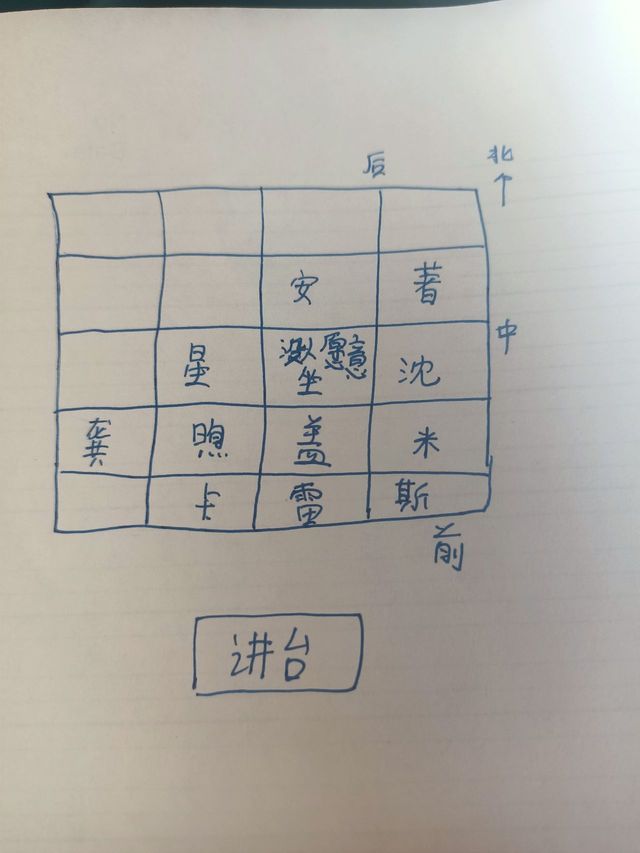 后 北
↑
安 著
中
星 没人愿意坐 沈
龚 煦 盖 米
卡 雷 斯
前
讲台